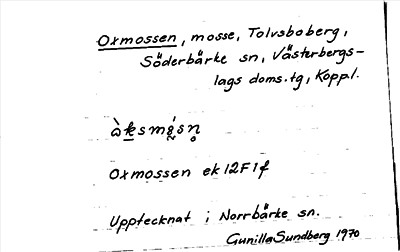 Oxmossen, mosse, Tolvsboberg,
Söderbärke sn, Västerbergs-
lags doms.tg, Koppl.
Oxmossen ek 12F1f
Upptecknat i Norrbärke sn.
Gunilla Sundberg 1970